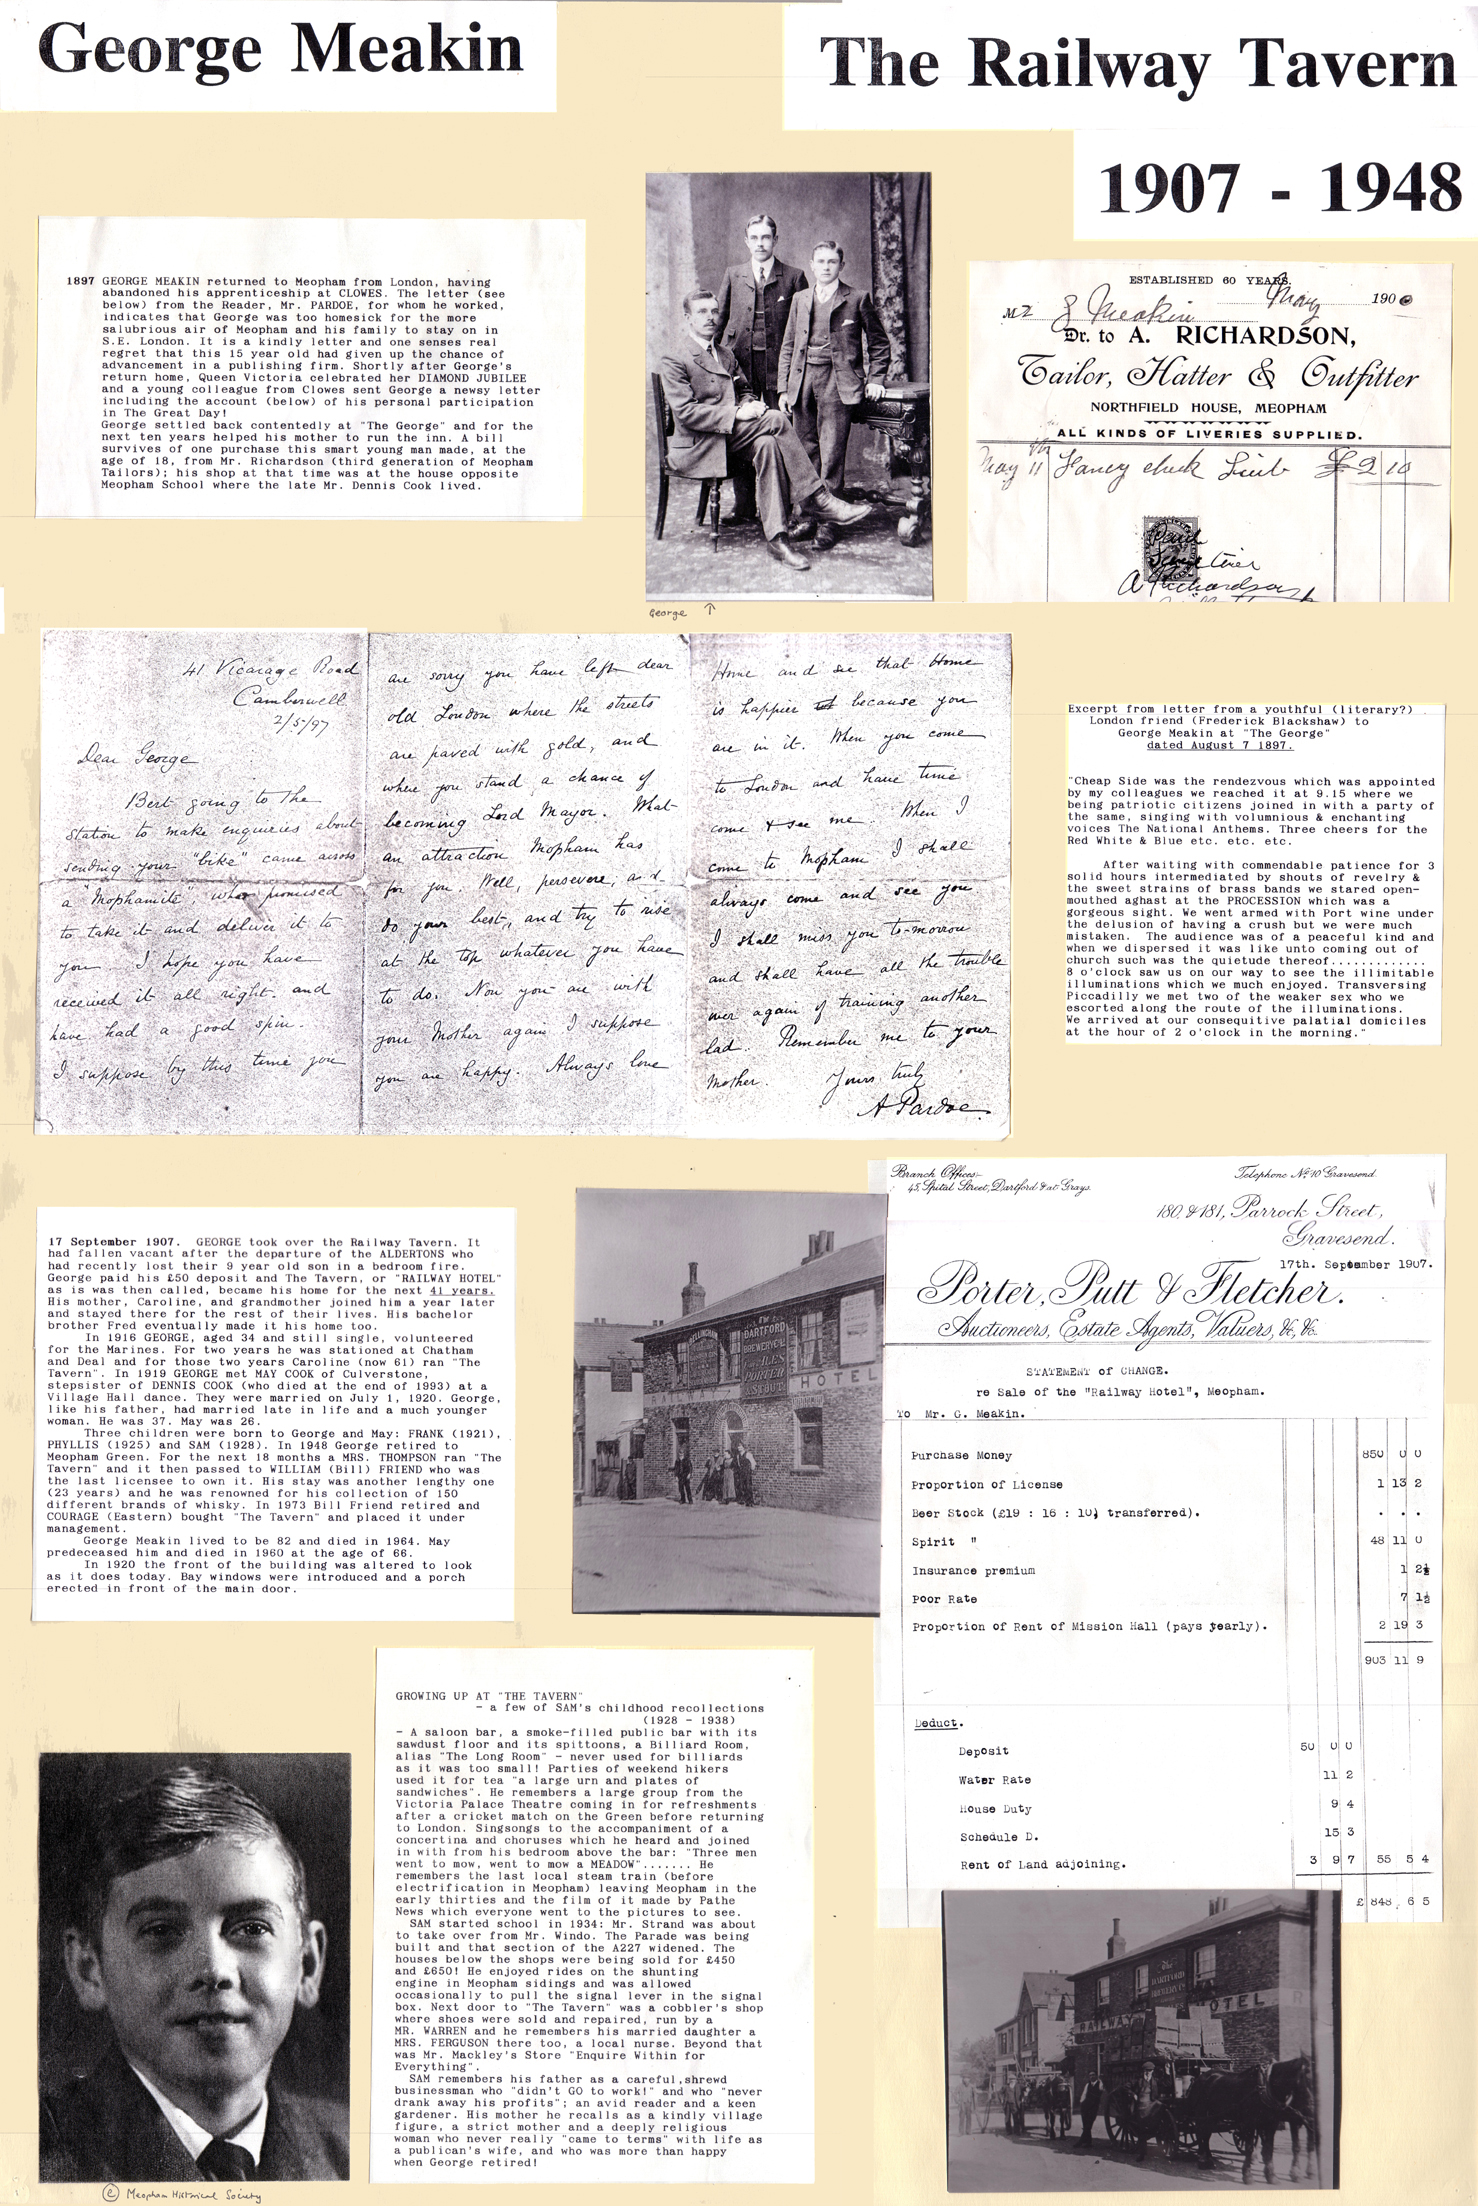 George Meakin
The Railway Tavern
1907 - 1948
1897 GEORGE MEAKIN returned to Meopham from London, having
abandoned his apprenticeship at CLOWES. The letter (see
below) from the Reader, Mr. PARDOE, for whom he worked,
indicates that George was too homesick for the more
salubrious air of Meopham and his family to stay on in
S.E. London. It is a kindly letter and one senses real
regret that this 15 year old had given up the chance of
advancement in a publishing firm. Shortly after George's
return home, Queen Victoria celebrated her DIAMOND JUBILEE
and a young colleague from Clowes sent George a newsy letter
including the account (below) of his personal participation
in The Great Day!
George settled back contentedly at "The George" and for the
next ten years helped his mother to run the inn. A bill
survives of one purchase this smart young man made, at the
age of 18, from Mr. Richardson (third generation of Meopham
Tailors); his shop at that time was at the house opposite
Meopham School where the late Mr. Dennis Cook lived.
George ↑
ESTABLISHED 60 YEARS.
May 1900
Mr G Meakin
Dr. to A. RICHARDSON,
Tailor, Hatter & Outfitter
NORTHFIELD HOUSE, MEOPHAM
ALL KINDS OF LIVERIES SUPPLIED.
May 11 Fancy check Suit £2 10
Paid
A Richardson
41 Vicarage Road
Camberwell
2/5/97
Dear George
Bert going to the
station to make enquiries about
sending your "bike" came across
a "Mophamite", who promised
to take it and deliver it to
you. I hope you have
received it all right. and
have had a good spin.
I suppose by this time you
are sorry you have left dear
old London where the streets
are paved with gold, and
where you stand a chance of
becoming Lord Mayor. What
an attraction Mopham has
for you. Well, persevere, and
do your best, and try to rise
at the top whatever you have
to do. Now you are with
your Mother again I suppose
you are happy. Always love
Home and see that Home
is happier because you
are in it. When you come
to London and have time
come & see me. When I
come to Mopham I shall
always come and see you
I shall miss you to-morrow
and shall have all the trouble
over again of training another
lad. Remember me to your
Mother. Yours truly
A Pardoe.
Excerpt from letter from a youthful (literary?)
London friend (Frederick Blackshaw) to
George Meakin at "The George"
dated August 7 1897.
"Cheap Side was the rendezvous which was appointed
by my colleagues we reached it at 9.15 where we
being patriotic citizens joined in with a party of
the same, singing with volumnious & enchanting
voices The National Anthems. Three cheers for the
Red White & Blue etc. etc. etc.
After waiting with commendable patience for 3
solid hours intermediated by shouts of revelry &
the sweet strains of brass bands we stared open-
mouthed aghast at the PROCESSION which was a
gorgeous sight. We went armed with Port wine under
the delusion of having a crush but we were much
mistaken. The audience was of a peaceful kind and
when we dispersed it was like unto coming out of
church such was the quietude thereof............
8 o'clock saw us on our way to see the illimitable
illuminations which we much enjoyed. Transversing
Piccadilly we met two of the weaker sex who we
escorted along the route of the illuminations.
We arrived at our consequitive palatial domiciles
at the hour of 2 o'clock in the morning."
17 September 1907. GEORGE took over the Railway Tavern. It
had fallen vacant after the departure of the ALDERTONS who
had recently lost their 9 year old son in a bedroom fire.
George paid his £50 deposit and The Tavern, or "RAILWAY HOTEL"
as is was then called, became his home for the next 41 years.
His mother, Caroline, and grandmother joined him a year later
and stayed there for the rest of their lives. His bachelor
brother Fred eventually made it his home too.
In 1916 GEORGE, aged 34 and still single, volunteered
for the Marines. For two years he was stationed at Chatham
and Deal and for those two years Caroline (now 61) ran "The
Tavern". In 1919 GEORGE met MAY COOK of Culverstone,
stepsister of DENNIS COOK (who died at the end of 1993) at a
Village Hall dance. They were married on July 1, 1920. George,
like his father, had married late in life and a much younger
woman. He was 37. May was 26.
Three children were born to George and May: FRANK (1921),
PHYLLIS (1925) and SAM (1928). In 1948 George retired to
Meopham Green. For the next 18 months a MRS. THOMPSON ran "The
Tavern" and it then passed to WILLIAM (Bill) FRIEND who was
the last licensee to own it. His stay was another lengthy one
(23 years) and he was renowned for his collection of 150
different brands of whisky. In 1973 Bill Friend retired and
COURAGE (Eastern) bought "The Tavern" and placed it under
management.
George Meakin lived to be 82 and died in 1964. May
predeceased him and died in 1960 at the age of 66.
In 1920 the front of the building was altered to look
as it does today. Bay windows were introduced and a porch
erected in front of the main door.
The
DARTFORD
BREWERY CO L
ALES
PORTER
STOUT
RAILWAY HOTEL
Branch Offices
45, Spital Street, Dartford & at Grays.
Telephone No. 10 Gravesend.
180 & 181, Parrock Street,
Gravesend.
17th. September 1907.
Porter, Putt & Fletcher.
Auctioneers, Estate Agents, Valuers, &c, &c.
STATEMENT of CHANGE.
re Sale of the "Railway Hotel", Meopham.
To Mr. G. Meakin.
Purchase Money 850 0 0
Proportion of License 1 13 2
Beer Stock (£19 : 16 : 10½ transferred). . . .
Spirit " 48 11 0
Insurance premium 1 2½
Poor Rate 7 1½
Proportion of Rent of Mission Hall (pays yearly). 2 19 3
903 11 9
Deduct.
Deposit 50 0 0
Water Rate 11 2
House Duty 9 4
Schedule D. 15 3
Rent of Land adjoining. 3 9 7 55 5 4
£ 848 6 5
GROWING UP AT "THE TAVERN"
- a few of SAM's childhood recollections
(1928 - 1938)
- A saloon bar, a smoke-filled public bar with its
sawdust floor and its spittoons, a Billiard Room,
alias "The Long Room" - never used for billiards
as it was too small! Parties of weekend hikers
used it for tea "a large urn and plates of
sandwiches". He remembers a large group from the
Victoria Palace Theatre coming in for refreshments
after a cricket match on the Green before returning
to London. Singsongs to the accompaniment of a
concertina and choruses which he heard and joined
in with from his bedroom above the bar: "Three men
went to mow, went to mow a MEADOW"....... He
remembers the last local steam train (before
electrification in Meopham) leaving Meopham in the
early thirties and the film of it made by Pathe
News which everyone went to the pictures to see.
SAM started school in 1934: Mr. Strand was about
to take over from Mr. Windo. The Parade was being
built and that section of the A227 widened. The
houses below the shops were being sold for £450
and £650! He enjoyed rides on the shunting
engine in Meopham sidings and was allowed
occasionally to pull the signal lever in the signal
box. Next door to "The Tavern" was a cobbler's shop
where shoes were sold and repaired, run by a
MR. WARREN and he remembers his married daughter a
MRS. FERGUSON there too, a local nurse. Beyond that
was Mr. Mackley's Store "Enquire Within for
Everything".
SAM remembers his father as a careful,shrewd
businessman who "didn't GO to work!" and who "never
drank away his profits"; an avid reader and a keen
gardener. His mother he recalls as a kindly village
figure, a strict mother and a deeply religious
woman who never really "came to terms" with life as
a publican's wife, and who was more than happy
when George retired!
The
DARTFORD
BREWERY
RAILWAY HOTEL
© Meopham Historical Society